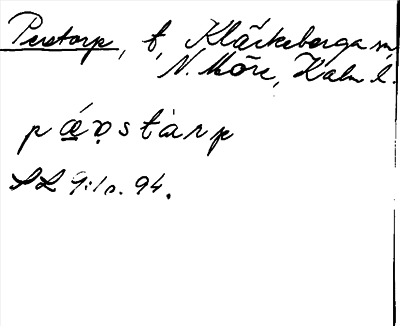 Perstorp, t, Kläckeberga sn,
N. Möre, Kalm l.
pǽọstàrp
SL 9:1 s. 94.